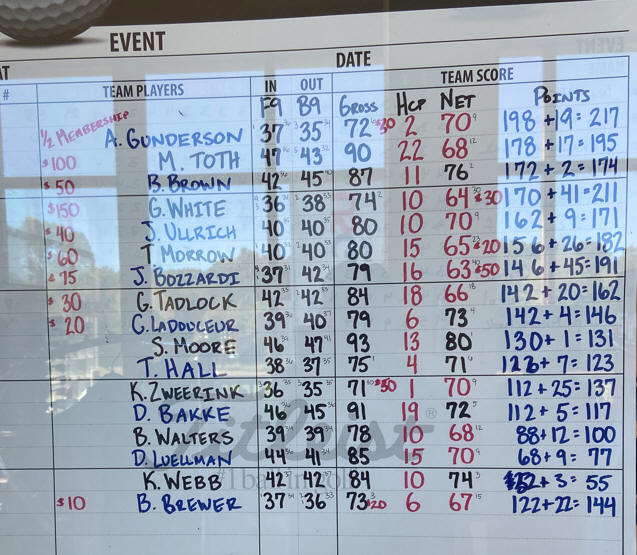 EVENT
DATE
AT # TEAM PLAYERS IN OUT TEAM SCORE
F9 B9 GROSS HCP NET POINTS
1/2 MEMBERSHIP A. GUNDERSON 37 35 72 $30 2 70 198 + 19 = 217
$100 M. TOTH 47 43 90 22 68 178 + 17 = 195
$50 B. BROWN 42 45 87 11 76 172 + 2 = 174
$150 G. WHITE 36 38 74 10 64 $30 170 + 41 = 211
J. ULLRICH 40 40 80 10 70 162 + 9 = 171
$40 T MORROW 40 40 80 15 65 $20 156 + 26 = 182
$60
$75 J. BOZZARDI 37 42 79 16 63 $50 146 + 45 = 191
$30 G. TADLOCK 42 42 84 18 66 142 + 20 = 162
$20 C. LADOUCEUR 39 40 79 6 73 142 + 4 = 146
S. MOORE 46 47 93 13 80 130 + 1 = 131
T. HALL 38 37 75 4 71 + 7 = 123
K. ZWEERINK 36 35 71 $30 1 70 112 + 25 = 137
D. BAKKE 46 45 91 19 72 112 + 5 = 117
B. WALTERS 39 39 78 10 68 88 + 12 = 100
D. LUELLMAN 44 41 85 15 70 68 + 9 = 77
K. WEBB 42 42 84 10 74 52 + 3 = 55
$10 B. BREWER 37 36 73 $20 6 67 122 + 22 = 144